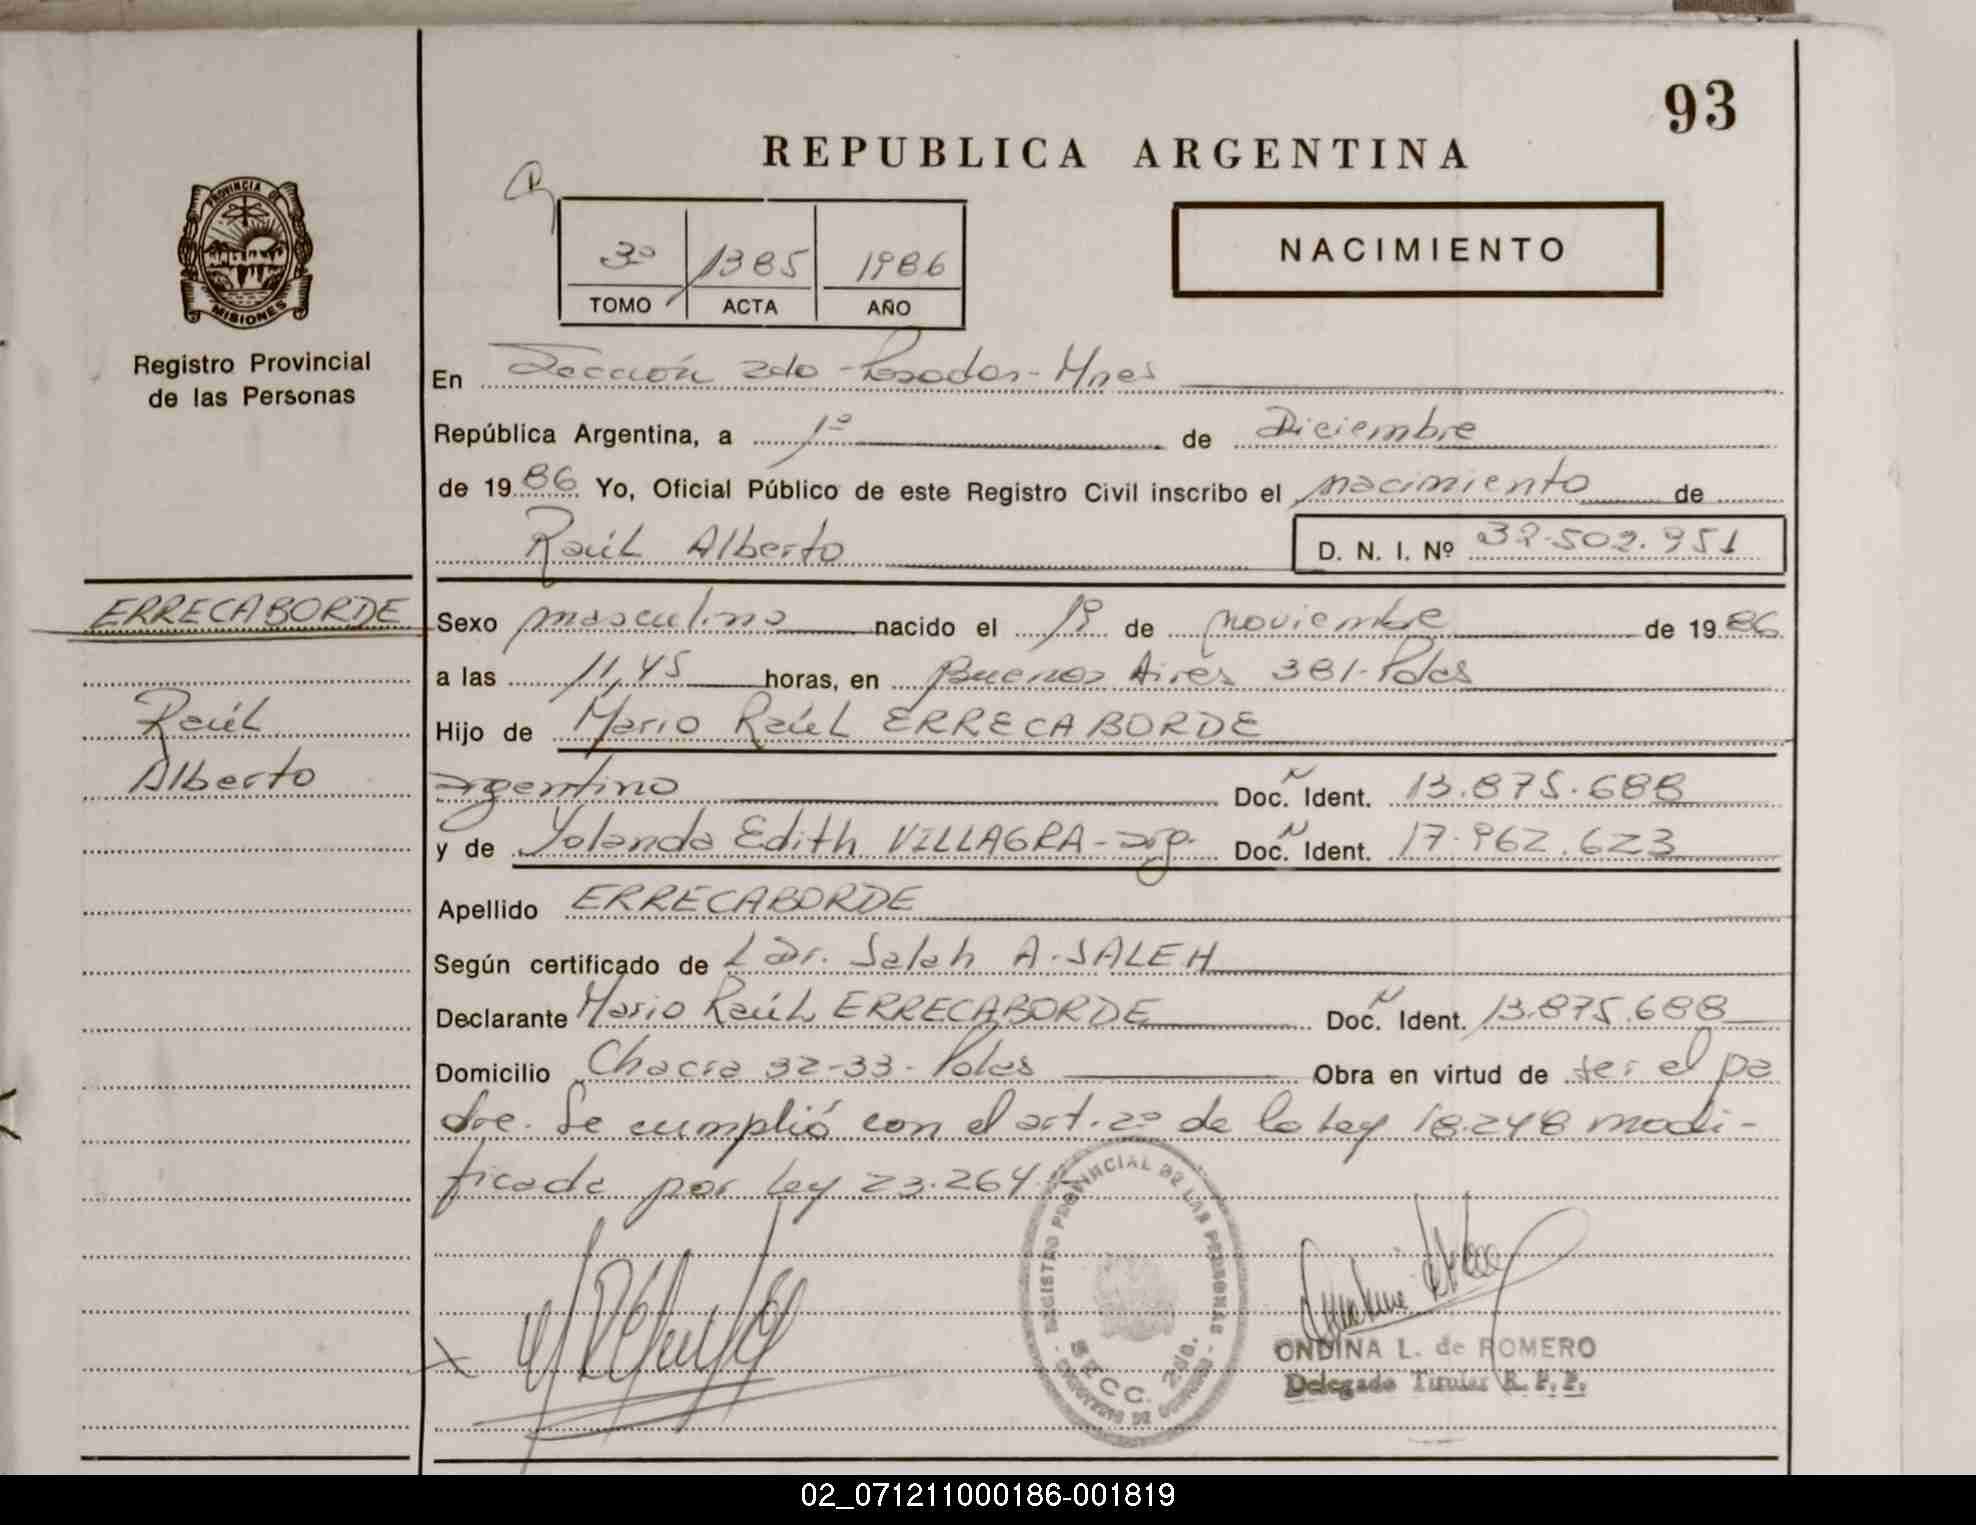 93
REPUBLICA ARGENTINA
PROVINCIA DE
MISIONES
Registro Provincial
de las Personas
3º 1385 1986
TOMO ACTA AÑO
NACIMIENTO
En Sección 2do - Posadas - Mnes
República Argentina, a 1º de Diciembre
de 1986 Yo, Oficial Público de este Registro Civil inscribo el nacimiento de
Raúl Alberto D. N. I. Nº 32.502.951
ERRECABORDE
Raúl
Alberto
Sexo masculino nacido el de noviembre de 1986
a las 11,45 horas, en Buenos Aires 381 - Pdas
Hijo de Mario Raúl ERRECABORDE
argentino Doc. N Ident. 13.875.688
y de Yolanda Edith VILLAGRA - arg. Doc. N Ident. 17.962.623
Apellido ERRECABORDE
Según certificado de Dr. Salah A. SALEH
Declarante Mario Raúl ERRECABORDE Doc. N Ident. 13.875.688
Domicilio Chacra 32-33 - Pdas Obra en virtud de ser el pa
dre. Se cumplió con el art. 2º de la Ley 18.248 modi-
ficada por Ley 23.264.-
REGISTRO PROVINCIAL DE LAS PERSONAS
SECC. 2da.
ONDINA L. de ROMERO
Delegado Titular R. P. P.
02_071211000186-001819